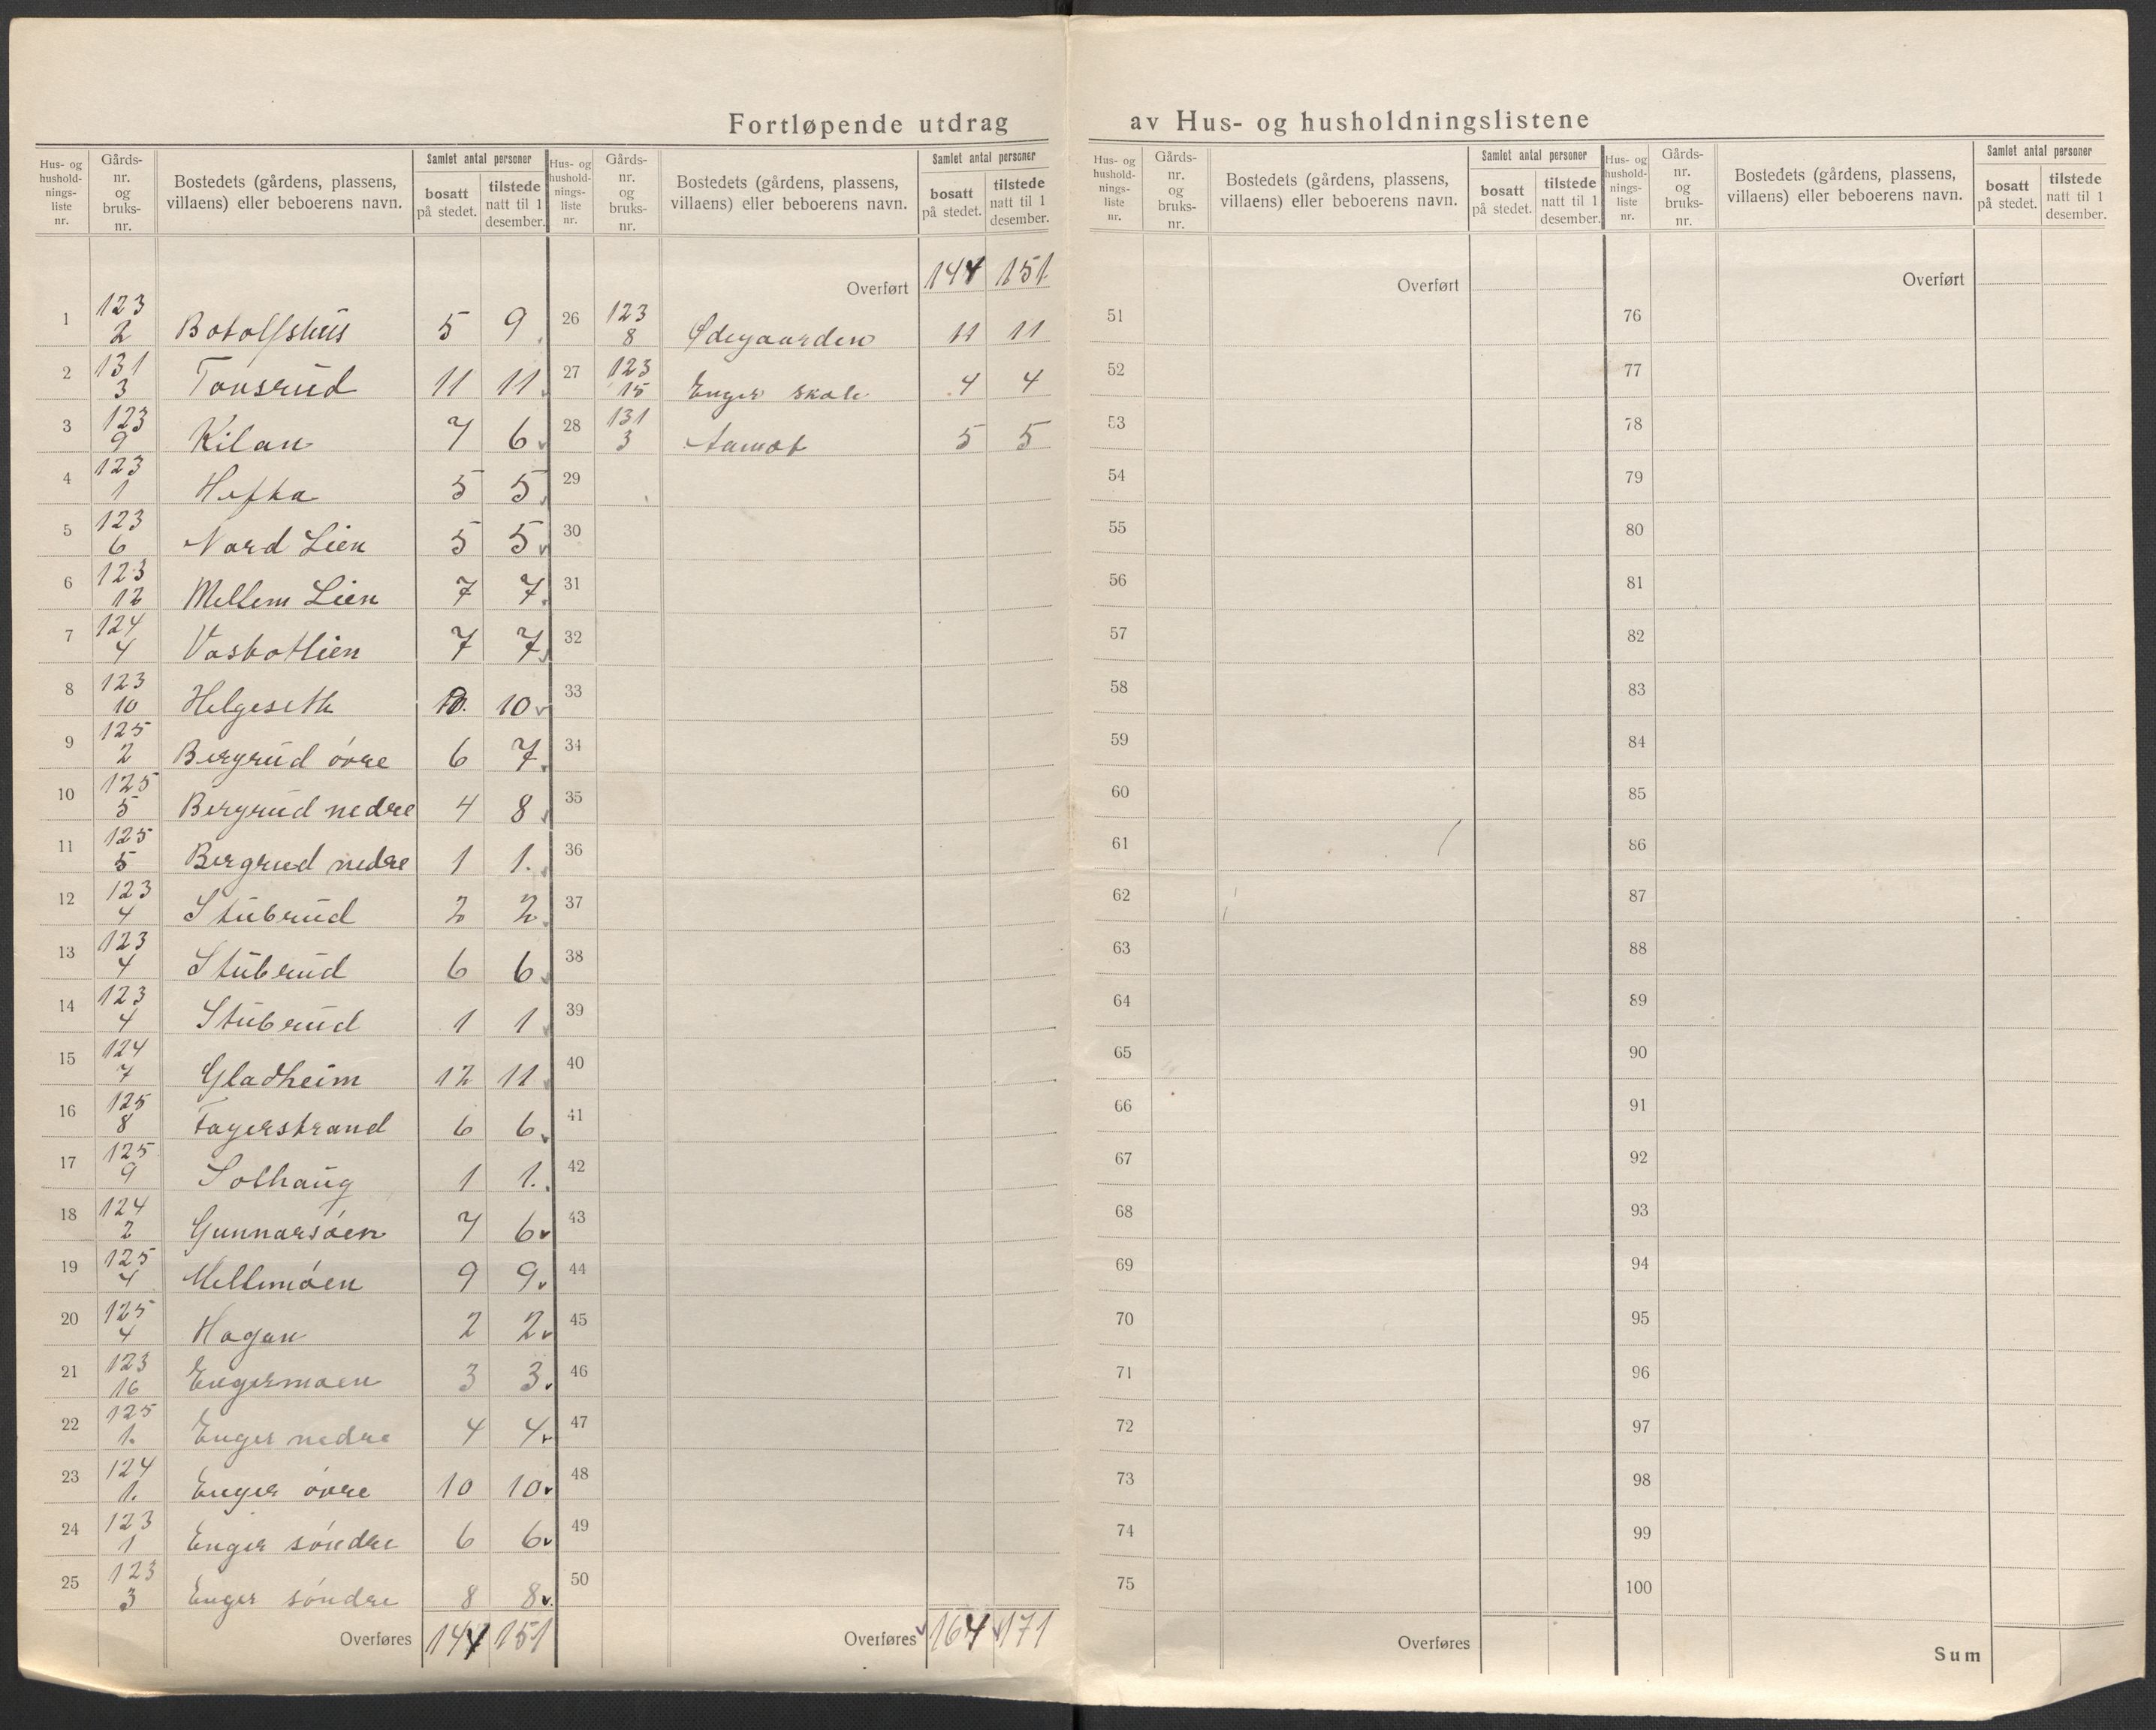 Fortløpende utdrag av Hus- og husholdningslistene
Hus- og hushold-nings-liste nr. Gårds-nr. og bruks-nr. Bostedets (gårdens, plassens, villaens) eller beboerens navn. Samlet antal personer bosatt på stedet. tilstede natt til 1 desember.
1 123 2 Botolfshus 5 9
2 131 3 Tonsrud 11 11
3 123 9 Kilan 7 6
4 123 1 Hefta 5 5
5 123 6 Nord Lien 5 5
6 123 12 Mellem Lien 7 7
7 124 4 Vasbotlien 7 7
8 123 10 Helgeseth 10 10
9 125 2 Bergrud övre 6 7
10 125 5 Bergrud nedre 4 8
11 125 5 Bergrud nedre 1 1.
12 123 4 Stubrud 2 2
13 123 4 Stubrud 6 6
14 123 4 Stubrud 1 1
15 124 7 Gladheim 12 11
16 125 8 Fagerstrand 6 6
17 125 9 Solhaug 1 1.
18 124 2 Gunnarsöen 7 6
19 125 4 Mellemöen 9 9
20 125 4 Hagan 2 2
21 123 16 Engermoen 3 3
22 125 1. Enger nedre 4 4
23 124 1. Enger övre 10 10
24 123 1 Enger söndre 6 6
25 123 3 Enger söndre 8 8
Overføres 144 151
Hus- og hushold-nings-liste nr. Gårds-nr. og bruks-nr. Bostedets (gårdens, plassens, villaens) eller beboerens navn. Samlet antal personer bosatt på stedet. tilstede natt til 1 desember.
Overført 144 151
26 123 8 Ødegaarden 11 11
27 123 15 Enger skole 4 4
28 131 3 Aamot 5 5
29
30
31
32
33
34
35
36
37
38
39
40
41
42
43
44
45
46
47
48
49
50
Overføres 164 171
Hus- og hushold-nings-liste nr. Gårds-nr. og bruks-nr. Bostedets (gårdens, plassens, villaens) eller beboerens navn. Samlet antal personer bosatt på stedet. tilstede natt til 1 desember.
Overført
51
52
53
54
55
56
57
58
59
60
61
62
63
64
65
66
67
68
69
70
71
72
73
74
75
Overføres
Hus- og hushold-nings-liste nr. Gårds-nr. og bruks-nr. Bostedets (gårdens, plassens, villaens) eller beboerens navn. Samlet antal personer bosatt på stedet. tilstede natt til 1 desember.
Overført
76
77
78
79
80
81
82
83
84
85
86
87
88
89
90
91
92
93
94
95
96
97
98
99
100
Sum